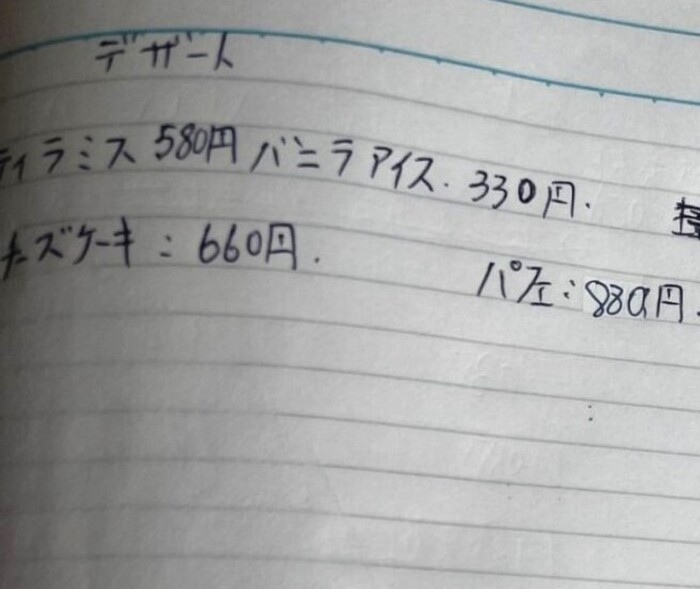 デザート
ティラミス 580円 バニラアイス. 330円.
チーズケーキ : 660円.
パフェ : 880円.